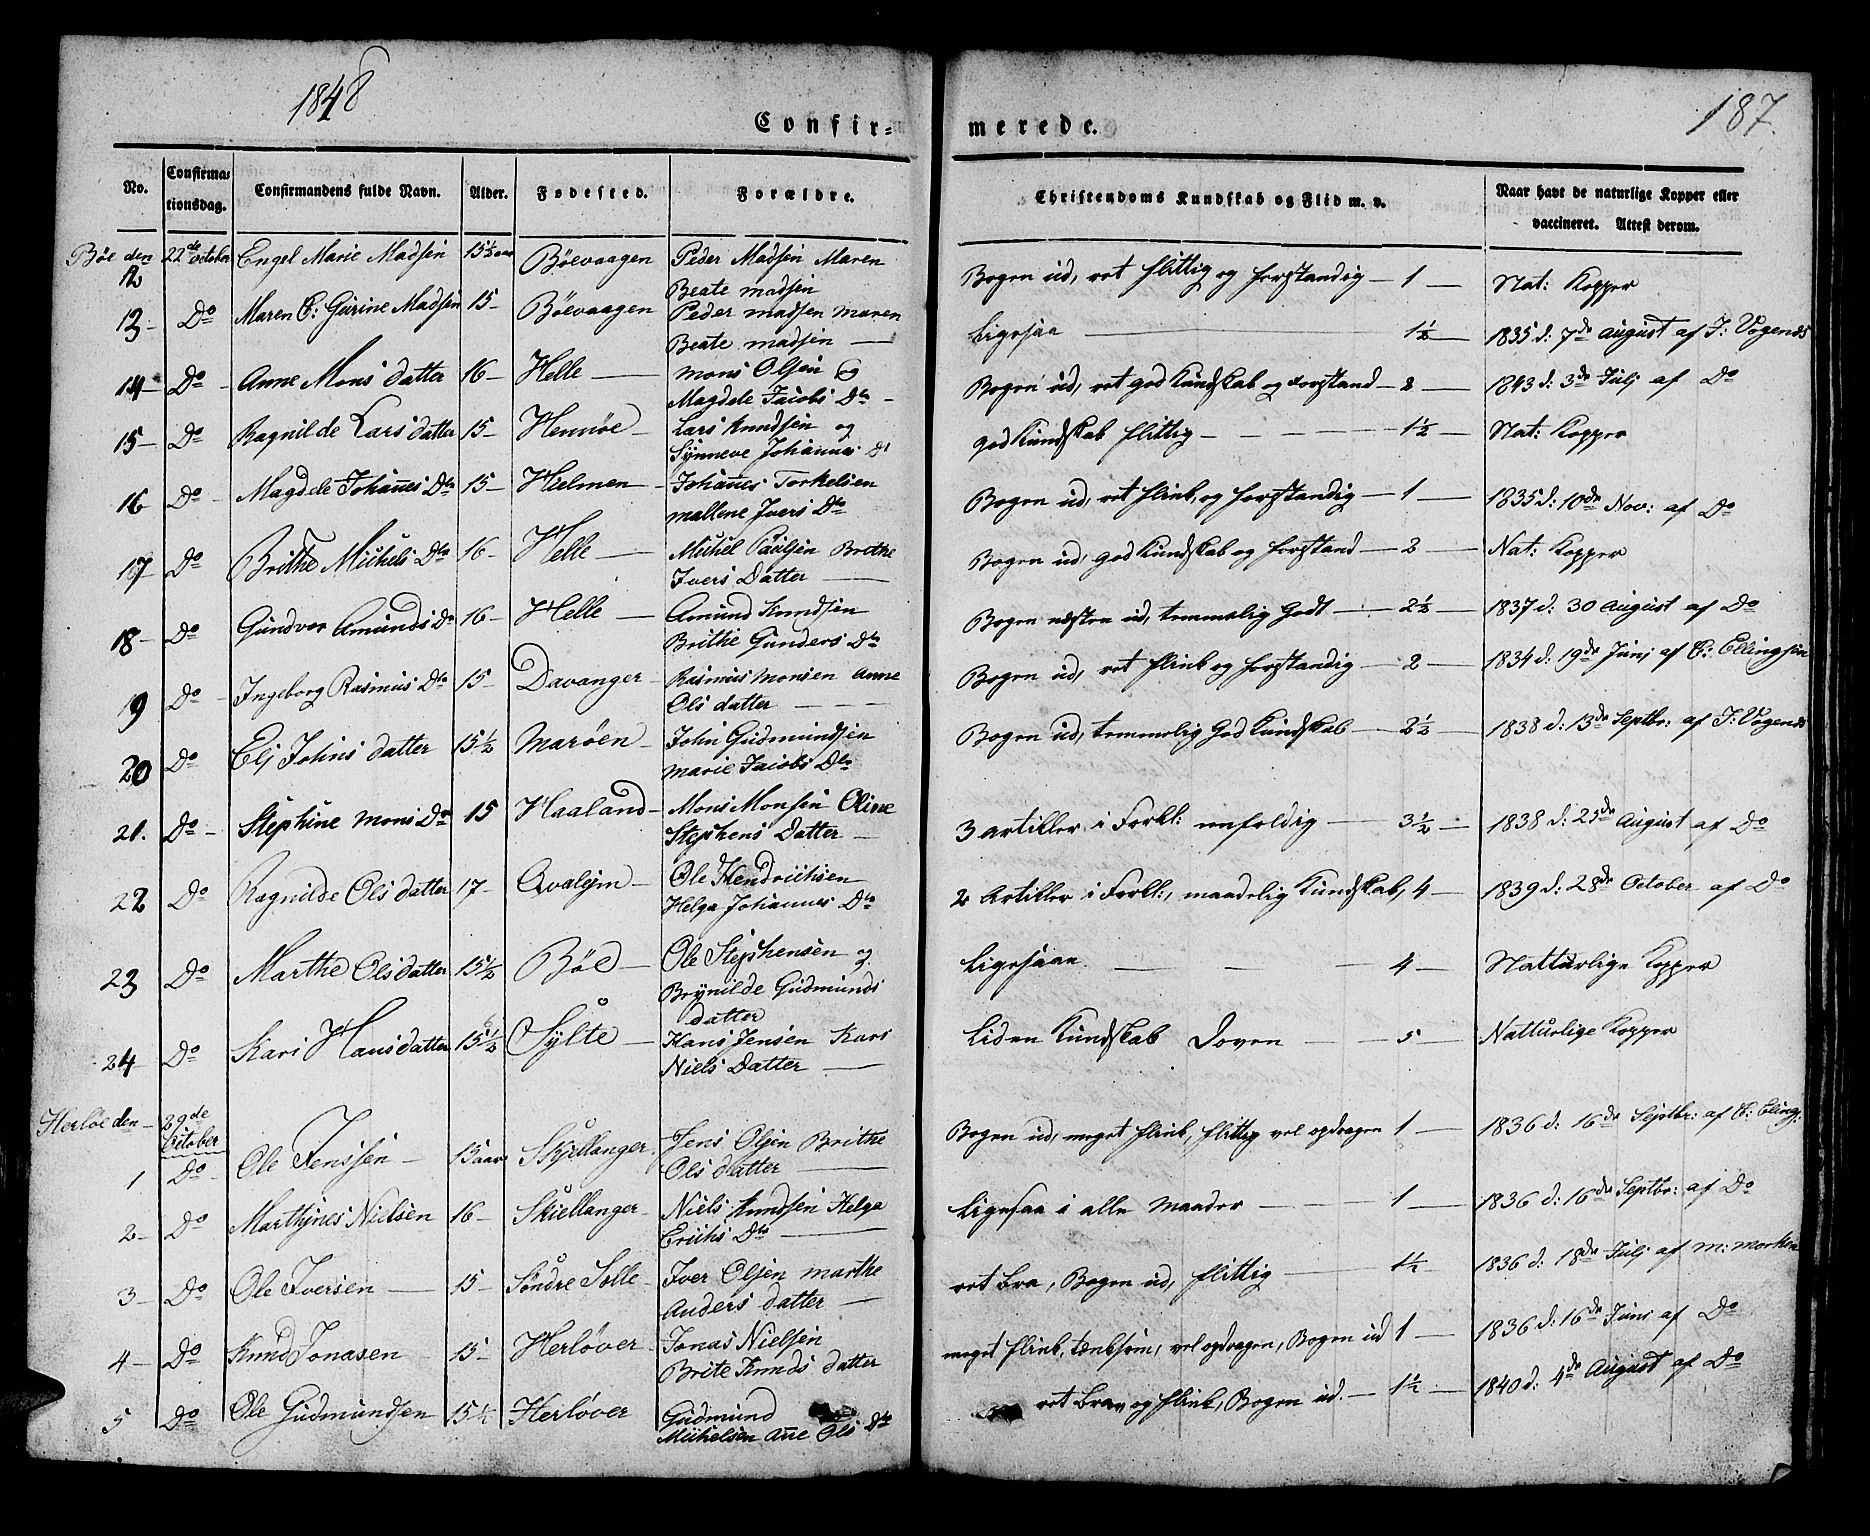 1848
187.
Confir= merede.
No. Confirma= tionsdag. Confirmandens fulde Navn. Alder. Fødested. Forældre. Christendoms Kundskab og Flid m. v. Naar havt de naturlige Kopper eller vaccineret. Attest derom.
Bøe den 22de October
12 Engel Marie Madsen 15½ aar Bøevaagen Peder Madsen Maren Bogen ud, ret flittig og forstandig — 1 — Nat: Kopper
Beate Madsen
13 — Do Maren C: Gurine Madsen 15 — Bøevaagen Peder Madsen Maren Ligesaa — 1½ — 1835 d: 7de August af J: Vogends
Beate Madsen —
14 — Do — Anne Mons datter 16 — Helle — Mons Olsen og Bogen ud, ret god Kundskab og Forstand — 2 — 1843 d: 3de Julj af Do
Magdele Jacobs Dtr —
15 — Do Ragnilde Lars datter 15 — Hennøe — Lars Knudsen og god Kundskab flittig — 1½ — Nat: Kopper
Synneve Johannes Dt
16 — Do — Magdele Johanes Dtr 15 — Hielmen — Johanes Torkelsen Bogen ud, ret flink og forstandig — 1 — 1835 d: 10de Nov: af Do
Mallene Ivers Do
17 — Do Brithe Michels Dtr 16 — Helle — Michel Paulsen Brithe Bogen ud, god Kundskab og forstand — 2 — Nat: Kopper
Ivers Datter —
18 — Do Gundvor Amunds Dr 16 — Helle — Amund Knudsen Bogen næsten ud, temmelig Godt — 2½ — 1837 d: 30 August af Do
Brithe Gunders Dtr
19 — Do — Ingeborg Rasmus Dtr 15 — Davanger — Rasmus Monsen Anne Bogen ud, ret flink og forstandig — 2 — 1834 d: 19de Junj af C: Ellingsen
Ols datter —
20 Do Elj Johns datter 15½ Marøen — John Gudmundsen Bogen ud, temmelig God Kundskab — 2½ — 1838 d: 13de Septbr: af J: Vogends
Marie Jacobs Dtr
21. Do — Stephine Mons Dr 15 Haaland — Mons Monsen Oline 3 artikler i Forkl: eenfoldig — 3½ — 1838 d: 25de August af Do
Stephens Datter —
22 Do Ragnilde Ols datter 17 — Qvalejm — Ole Hendrichsen 2 Artikler i Forkl:, maadelig Kundskab, 4 — 1839 d: 28de October af Do
Helga Johannes Dtr
23 Do Marthe Ols datter 15½ Bøe — Ole Stephensen og Ligesaa — 4 — Natturlige Kopper
Brynilde Gudmunds
datter
24 — Do Kari Hans datter 15½ Sylte — Hans Jensen Kari Liden Kundskab Doven — 5 — Natturlige Kopper
Niels Datter —
Herløe den — 29de October
1 Do — Ole Jenssen — 15 aar Skjellanger Jens Olsen Brithe Bogen ud, meget flink, flittig vel opdragen 1 — 1836 d: 16de Septbr: af C: Eling:
Ols datter —
2 — Do Marthines Nielsen 16 — Skiellanger — Niels Knudsen Helga Ligesaa i alle Maader — 1 — 1836 d: 16de Septbr: af Do
Erichs Dtr —
3 — Do — Ole Iversen — 15 — Søndre Solle — Iver Olsen Marthe ret bra, Bogen ud, flittig — 1½ — 1836 d: 18de Julj af M: Morken
Anders datter —
4 — Do Knud Jonasen — 15 — Herløver — Jonas Nielsen meget flink, tænksom, vel opdragen, Bogen ud 1 — 1836 d: 16de Juni af Do
Brite Knuds datter
5 Do Ole Gudmundsen 15½ Herløver Gudmund ret brav og flink, Bogen ud. — 1½ — 1840 d: 4de August af Do
Michelsen Ane Ols Dtr